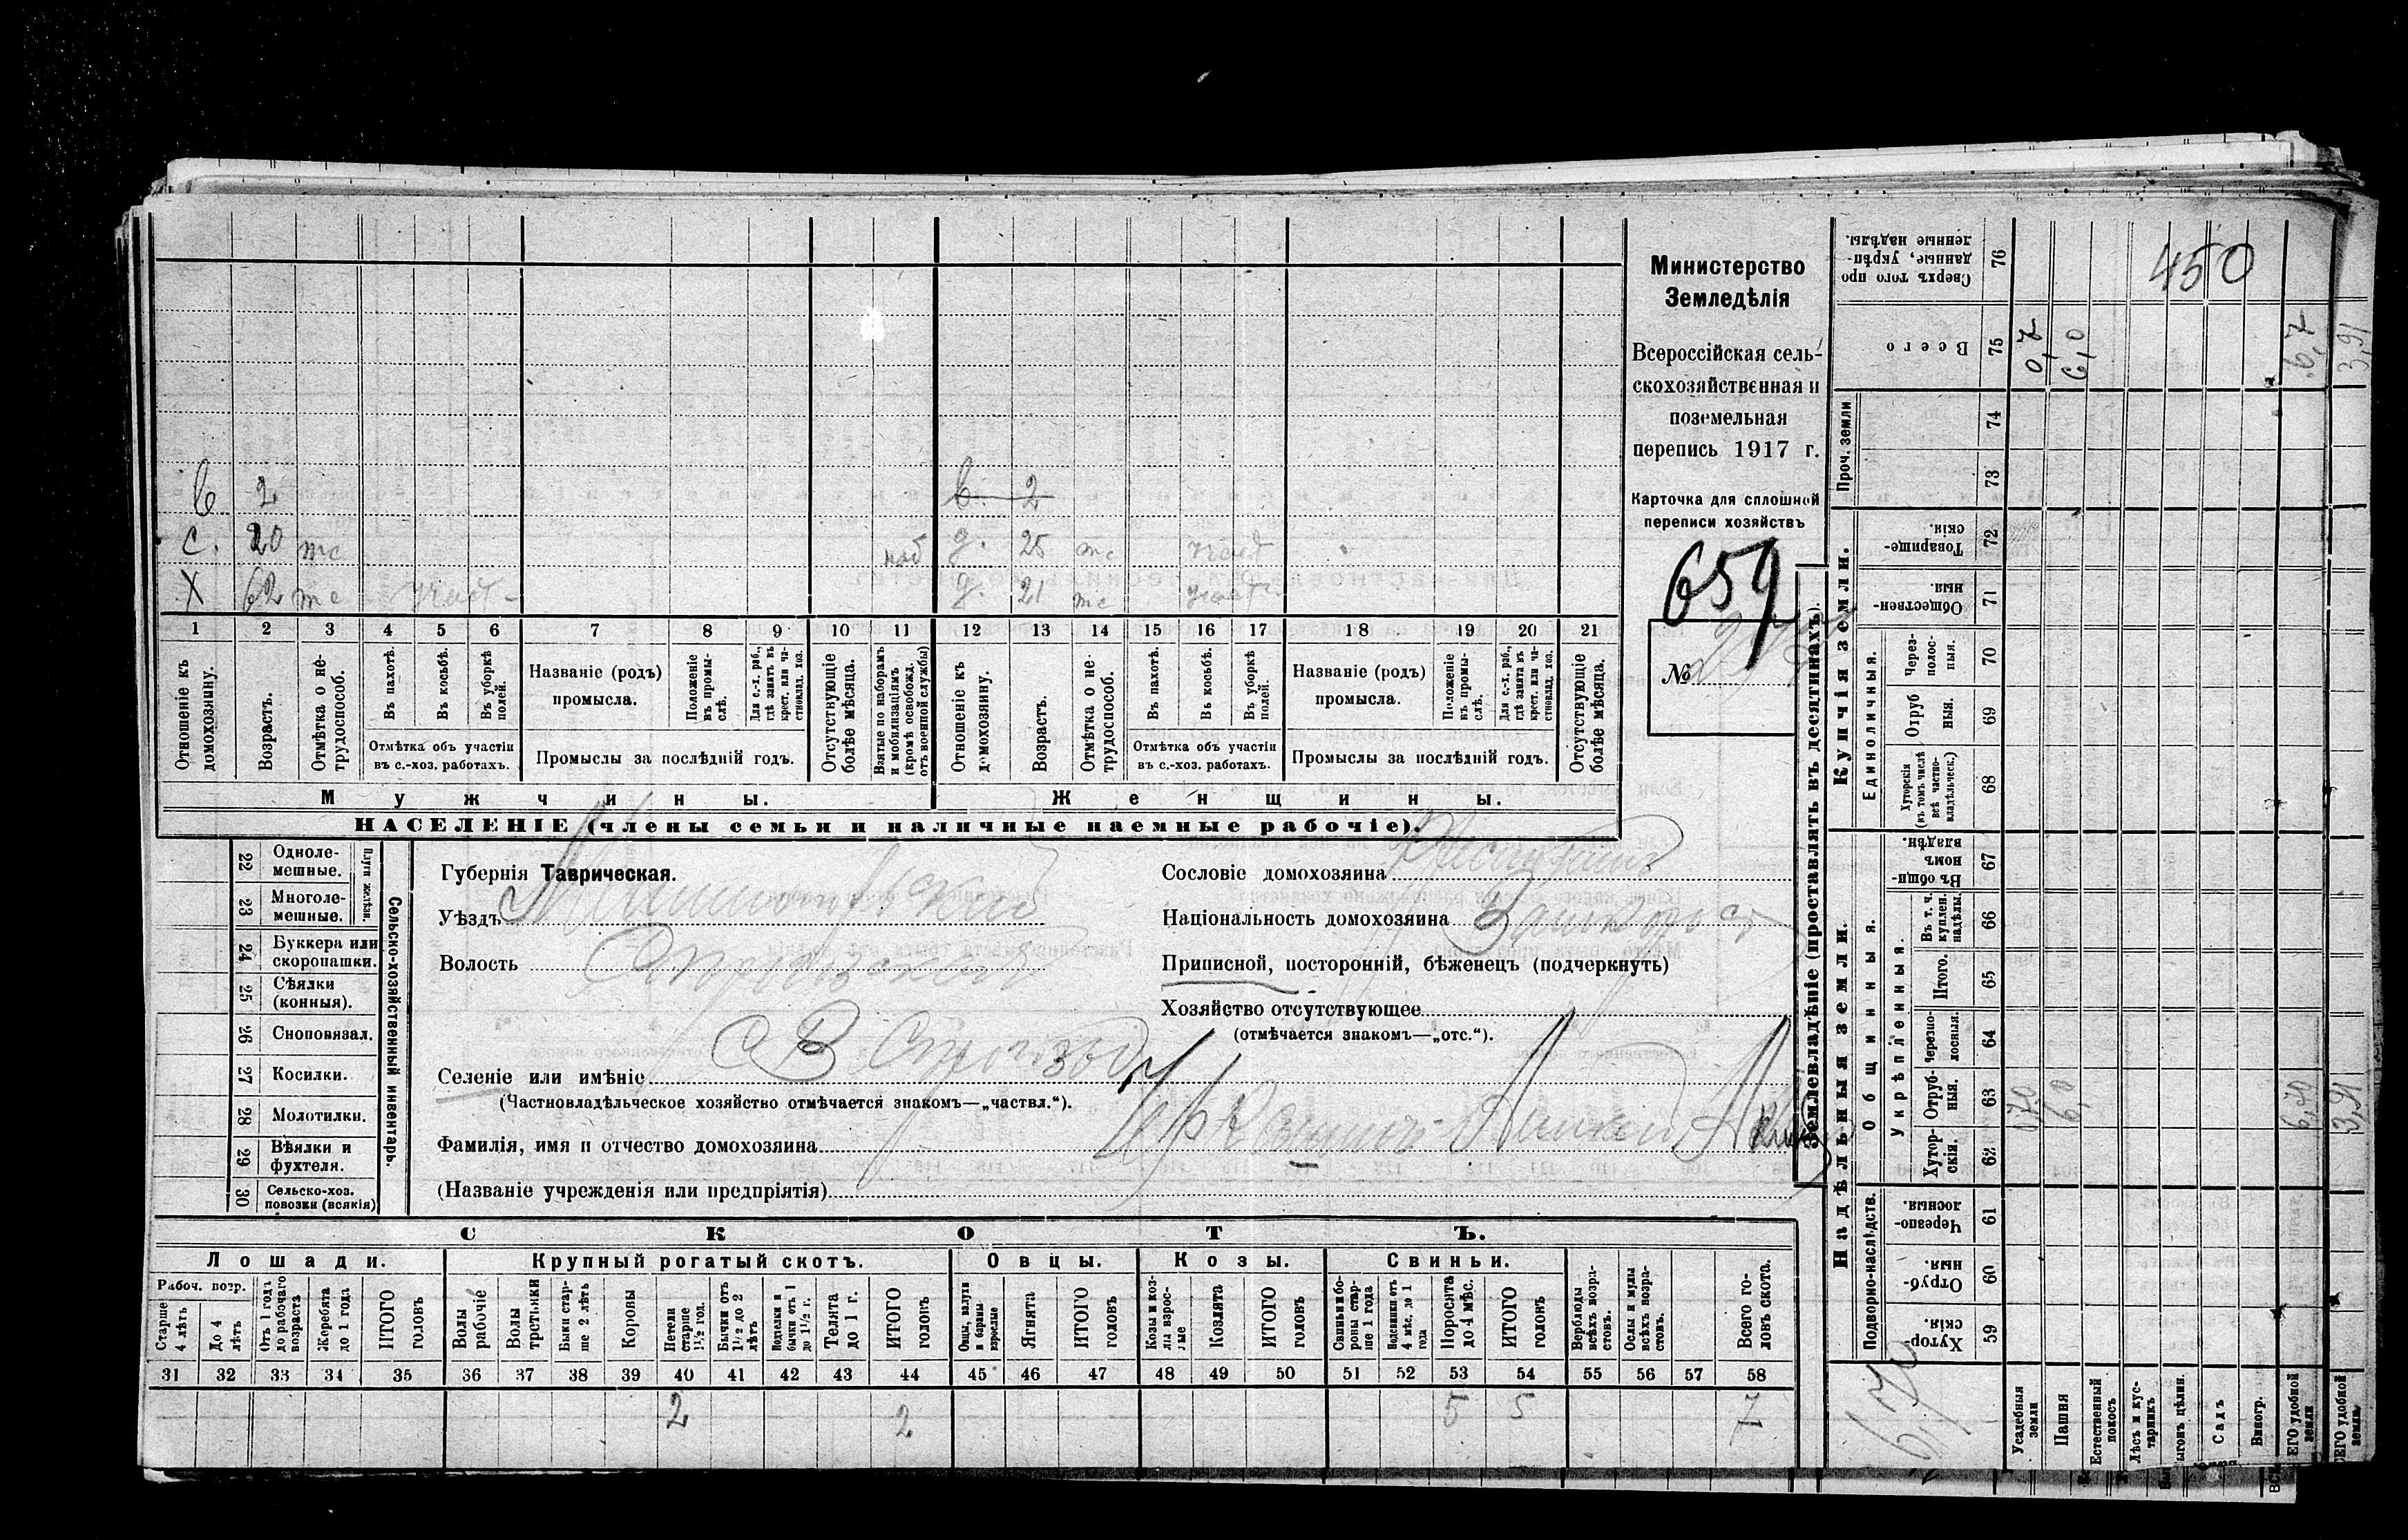 Министерство
Земледѣлія
Всероссійская сель-
скохозяйственная и
поземельная
перепись 1917 г.
Карточка для сплошной
переписи хозяйствъ
659
№
в 2
в. 2
с. 20
д. 25
Х 62
д. 21
1 2 3 4 5 6 7 8 9 10 11 12 13 14 15 16 17 18 19 20 21
Отношеніе къ домохозяину.
Возрастъ.
Отмѣтка о не-трудоспособ.
Въ пахотѣ.
Въ косьбѣ.
Въ уборкѣ полей.
Отмѣтка объ участіи
въ с.-хоз. работахъ.
Названіе (родъ)
промысла.
Положеніе въ промы-слѣ.
Для с.-х. раб., гдѣ занятъ въ крест. или ча-стновлад. хоз.
Промыслы за послѣдній годъ.
Отсутствующіе болѣе мѣсяца.
Взятые по наборамъ и мобилизаціямъ (кромѣ освобожд. отъ военной службы)
Отношеніе къ домохозяину.
Возрастъ.
Отмѣтка о не-трудоспособ.
Въ пахотѣ.
Въ косьбѣ.
Въ уборкѣ полей.
Отмѣтка объ участіи
въ с.-хоз. работахъ.
Названіе (родъ)
промысла.
Положеніе въ промы-слѣ.
Для с.-х. раб., гдѣ занята въ крест. или ча-стновлад. хоз.
Промыслы за послѣдній годъ.
Отсутствующіе болѣе мѣсяца.
Мужчины.
Женщины.
НАСЕЛЕНІЕ (члены семьи и наличные наемные рабочіе).
Сельско-хозяйственный инвентарь.
Плуги желѣзн.
22 Одноле-мешные.
23 Многоле-мешные.
24 Буккера или скоропашки.
25 Сѣялки (конныя).
26 Сноповязал.
27 Косилки.
28 Молотилки.
29 Вѣялки и фухтеля.
30 Сельско-хоз. повозки (всякія)
Губернія Таврическая.
Уѣздъ
Волость
Селеніе или имѣніе
(Частновладѣльческое хозяйство отмѣчается знакомъ—„частвл.“).
Фамилія, имя и отчество домохозяина
(Названіе учрежденія или предпріятія)
Сословіе домохозяина
Національность домохозяина
Приписной, посторонній, бѣженецъ (подчеркнуть)
Хозяйство отсутствующее
(отмѣчается знакомъ—„отс.“).
СКОТЪ.
Лошади.
Крупный рогатый скотъ.
Овцы.
Козы.
Свиньи.
Рабоч. возр.
Старше 4 лѣтъ
До 4 лѣтъ
Отъ 1 года до рабочаго возраста
Жеребята до 1 года
ИТОГО головъ
Волы рабочіе
Волы третьяки
Быки стар-ше 2 лѣтъ
Коровы
Нетели старше 1½ год.
Бычки отъ 1½ до 2 лѣтъ
Подтелки и бычки отъ 1 до 1½ г.
Телята до 1 г.
ИТОГО головъ
Овцы, валухи и бараны взрослые
Ягнята
ИТОГО головъ
Козы и коз-лы взрос-лые
Козлята
ИТОГО головъ
Свиньи и бо-ровы стар-ше 1 года
Подсвинки отъ 4 мѣс. до 1 года
Поросята до 4 мѣс.
ИТОГО головъ
Верблюды всѣхъ возра-стовъ.
Ослы и мулы всѣхъ возра-стовъ.
Всего го-ловъ скота.
31 32 33 34 35 36 37 38 39 40 41 42 43 44 45 46 47 48 49 50 51 52 53 54 55 56 57 58
2 2 5 5 7
Землевладѣніе (проставлять въ десятинахъ).
Надѣльныя земли.
Купчія земли.
Проч. земли
Подворно-наслѣдств.
Общинныя.
Укрѣпленныя.
Единоличныя.
59 Хутор-скія.
60 Отруб-ныя.
61 Черезпо-лосныя.
62 Хутор-скія.
63 Отруб-ныя.
64 Черезпо-лосныя.
65 Итого.
66 Въ т. ч. куплен. надѣлы.
67 Въ общи-номъ владѣн.
68 Хуторскія (въ томъ числѣ всѣ частно-владѣльческ.)
69 Отруб ныя.
70 Через-полос-ныя.
71 Обществен-ныя
72 Товарище-скія.
73
74
75 Всего
76 Сверхъ того про данные, укрѣп-ленные надѣлы.
Усадебныя земли
Пашня
Естественный покосъ
Лѣсъ и кус-тарникъ
Садъ
Виногр.
ЕГО удобной земли
ЕГО удобной земли.
450
0,7
6,0
6,7
3,91
0,70
6,0
3,91
6,70